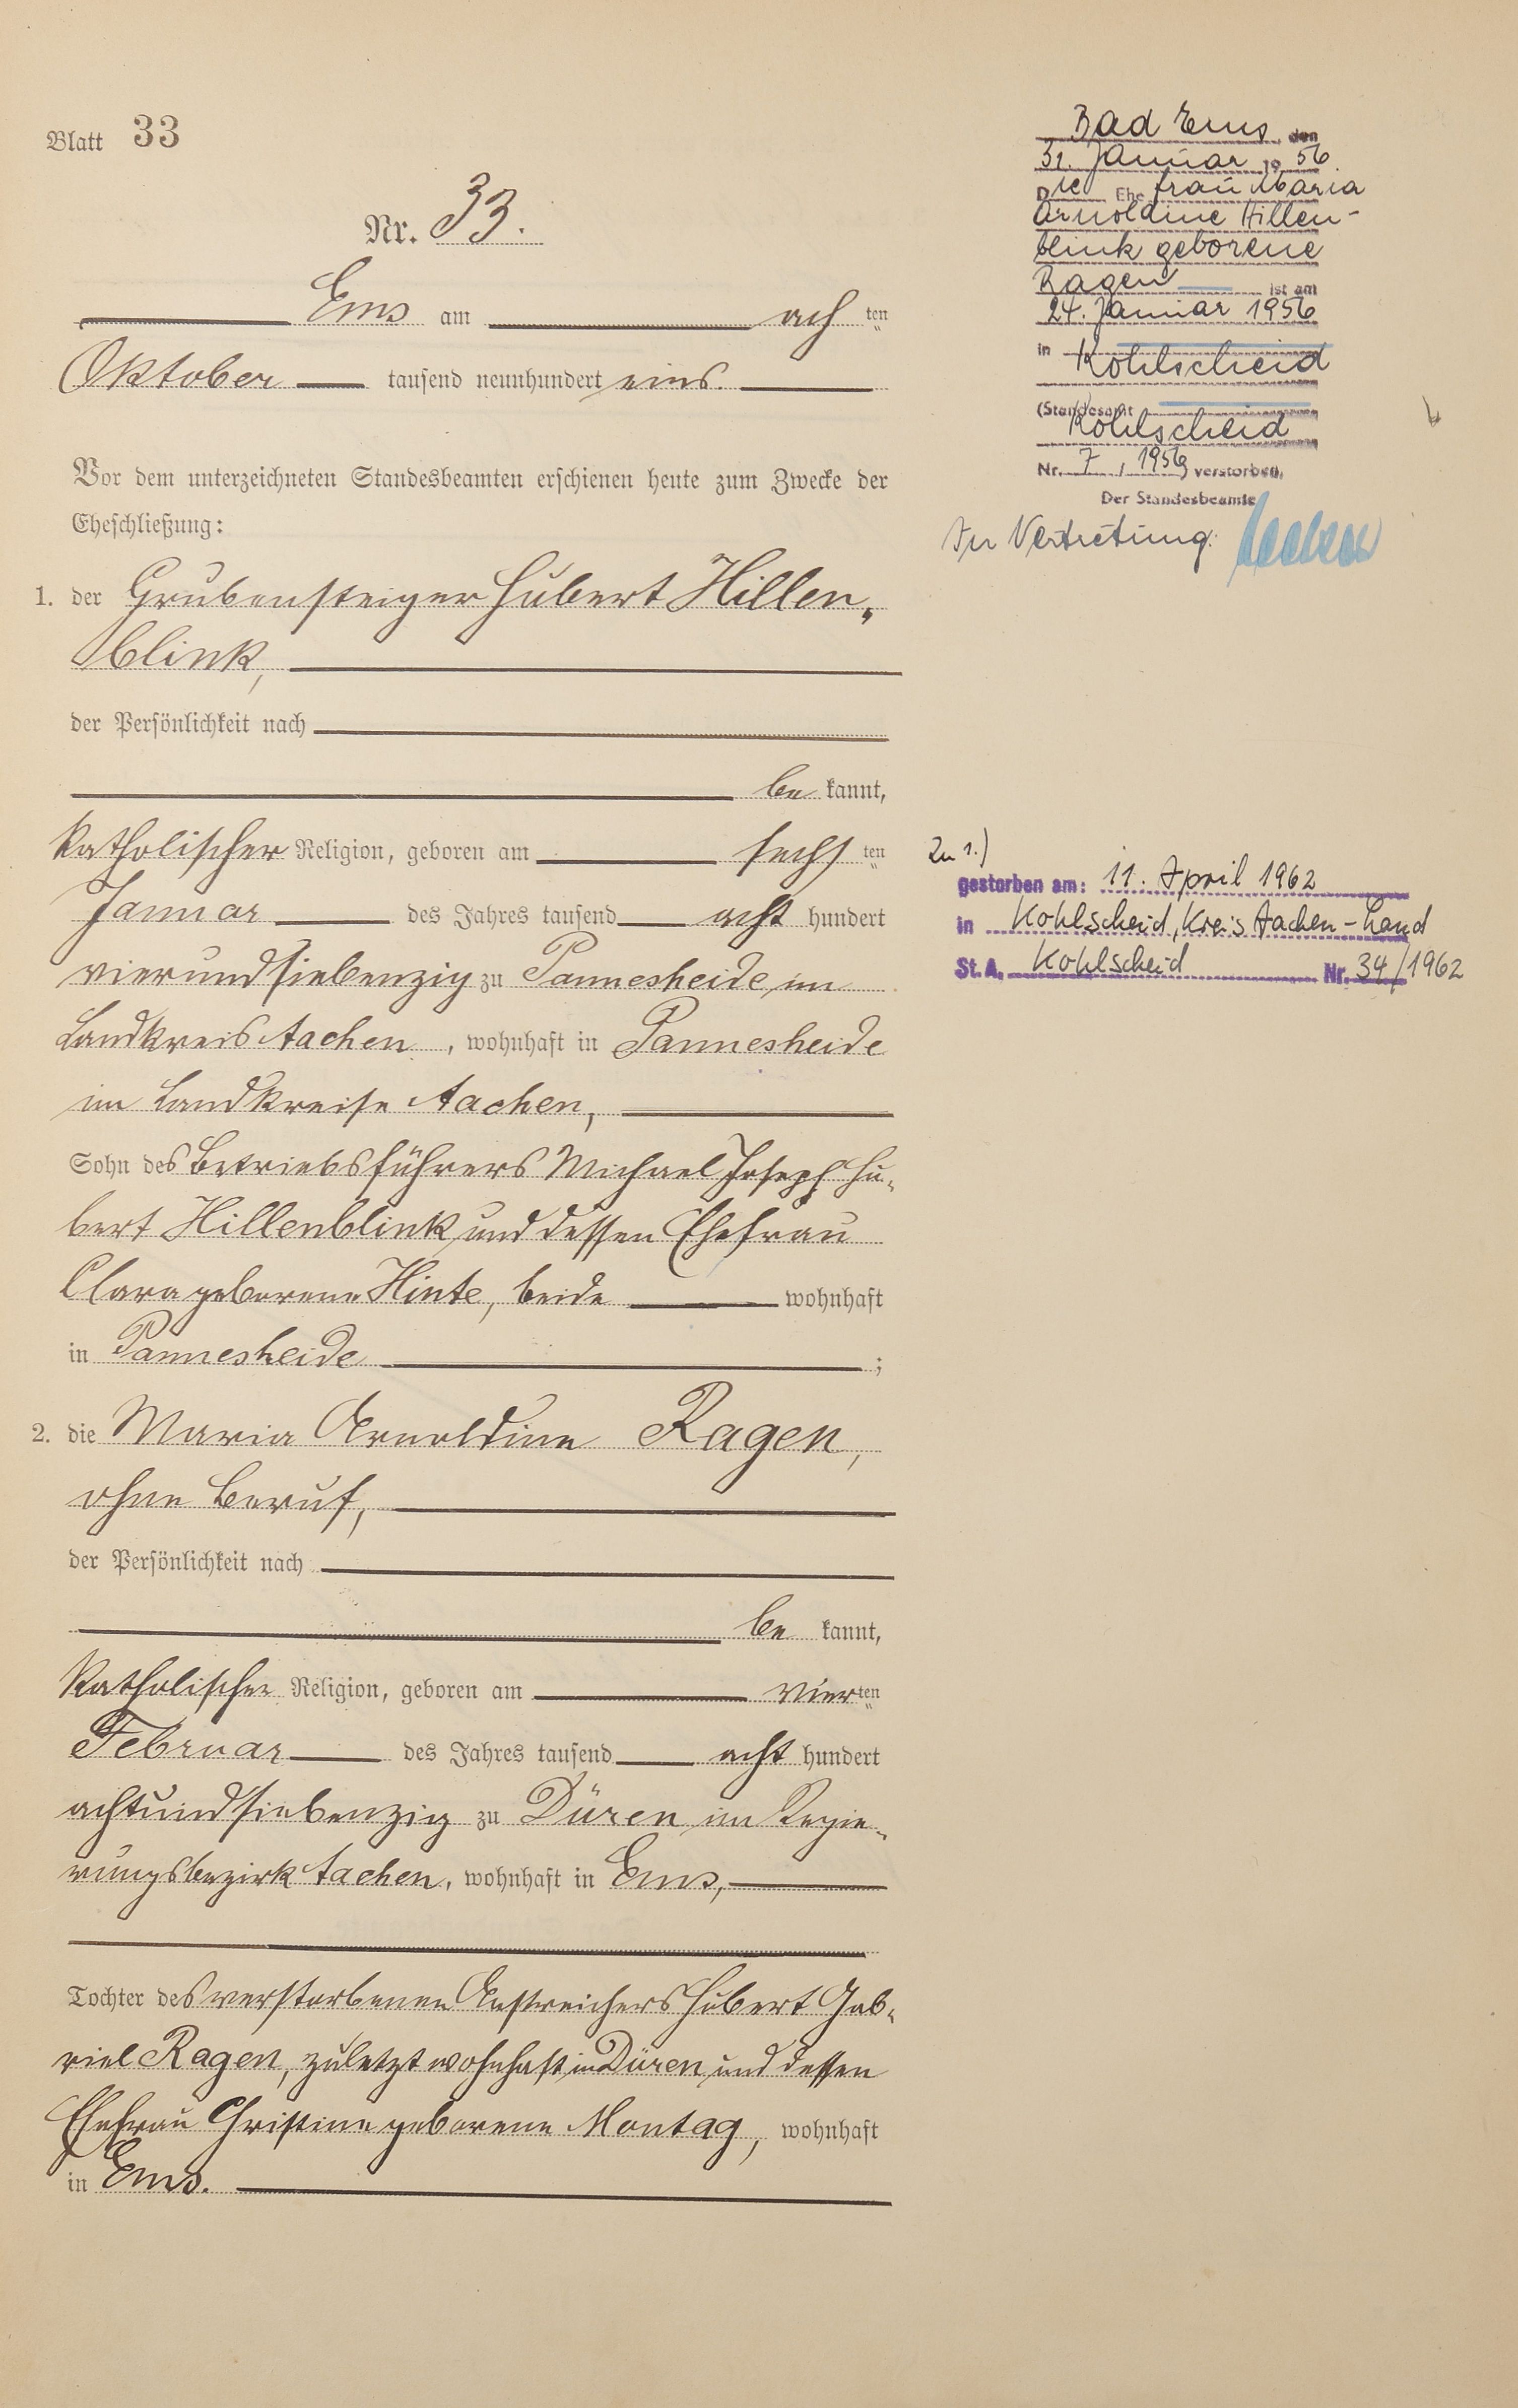 Blatt 33
Nr. 33.
Ems am ach ten
Oktober tausend neunhundert eins.
Vor dem unterzeichneten Standesbeamten erschienen heute zum Zwecke der
Eheschließung:
1. der Grubensteiger Hubert Hillen-
blink,
der Persönlichkeit nach
be kannt,
katholischer Religion, geboren am sechs ten
Januar des Jahres tausend acht hundert
vierundsiebenzig zu Pannesheide im
Landkreis Aachen, wohnhaft in Pannesheide
im Landkreise Aachen,
Sohn des Betriebsführers Michael Joseph Hu-
bert Hillenblink und dessen Ehefrau
Clara geborene Hinte, beide wohnhaft
in Pannesheide ;
2. die Maria Arnoldine Ragen,
ohne Beruf,
der Persönlichkeit nach
be kannt,
katholischer Religion, geboren am vier ten
Februar des Jahres tausend acht hundert
achtundsiebenzig zu Düren im Regie-
rungsbezirk Aachen, wohnhaft in Ems,
Tochter des verstorbenen Anstreichers Hubert Gab-
riel Ragen, zuletzt wohnhaft in Düren und dessen
Ehefrau Christine geborene Montag, wohnhaft
in Ems.
Bad Ems, den
31. Januar 19 56.
Die Ehefrau Maria
Arnoldine Hillen-
blink geborene
Ragen ist am
24. Januar 1956
in Kohlscheid
(Standesamt
Kohlscheid
Nr. 7 / 1956) verstorben.
Der Standesbeamte
In Vertretung:
Zu 1.)
gestorben am: 11. April 1962
in Kohlscheid, Kreis Aachen-Land
St. A. Kohlscheid Nr. 34/1962